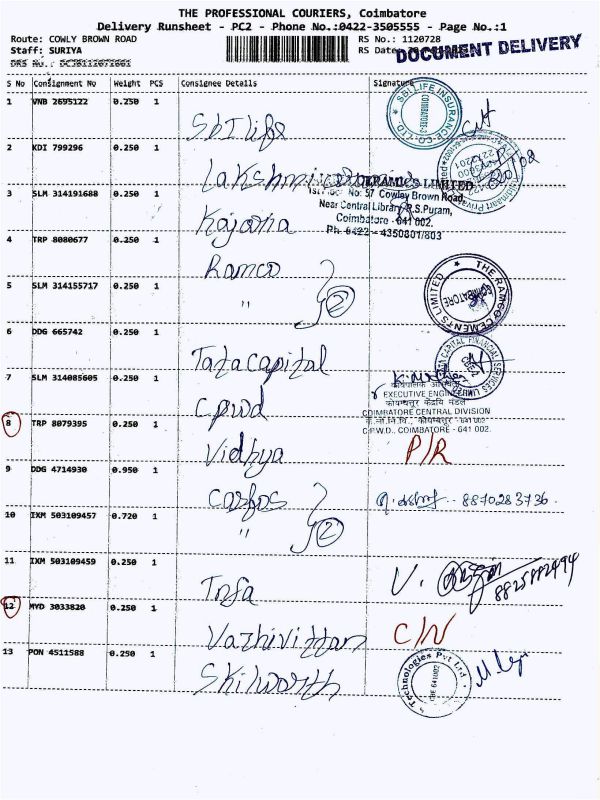 THE PROFESSIONAL COURIERS, Coimbatore
Delivery Runsheet - PC2 - Phone No.:0422-3505555 - Page No.:1
Route: COWLY BROWN ROAD
RS No.: 1120728
Staff: SURIYA
RS Date:
DOCUMENT DELIVERY
DRS No.:
S No Consignment No Weight PCS Consignee Details Signature
1 VNB 2695122 0.250 1
SbI life
SBI LIFE INSURANCE CO. LTD.
2 KDI 799296 0.250 1
CERAMICS LIMITED
No: 57 Cowley Brown Road,
3 SLM 314191688 0.250 1
Near Central Library, R.S.Puram,
Kajaria
Coimbatore - 641 002.
Ph: 0422 - 4350801/803
4 TRP 8080677 0.250 1
Ramco
THE RAMCO CEMENTS LIMITED
COIMBATORE
5 SLM 314155717 0.250 1
"
2
6 DDG 665742 0.250 1
Tatacapital
CAPITAL FINANCIAL SERVICES LIMITED
7 SLM 314085605 0.250 1
Cpwd
कार्यपालक
EXECUTIVE ENGINEER
COIMBATORE CENTRAL DIVISION
C.P.W.D., COIMBATORE - 641 002.
8 TRP 8079395 0.250 1
Vidhya
P/R
9 DDG 4714930 0.950 1
8870283736
10 IXM 503109457 0.720 1
"
2
11 IXM 503109459 0.250 1
8825882494
12 MYD 3033820 0.250 1
C/N
13 PON 4511588 0.250 1
Skilworth
Technologies Pvt Ltd